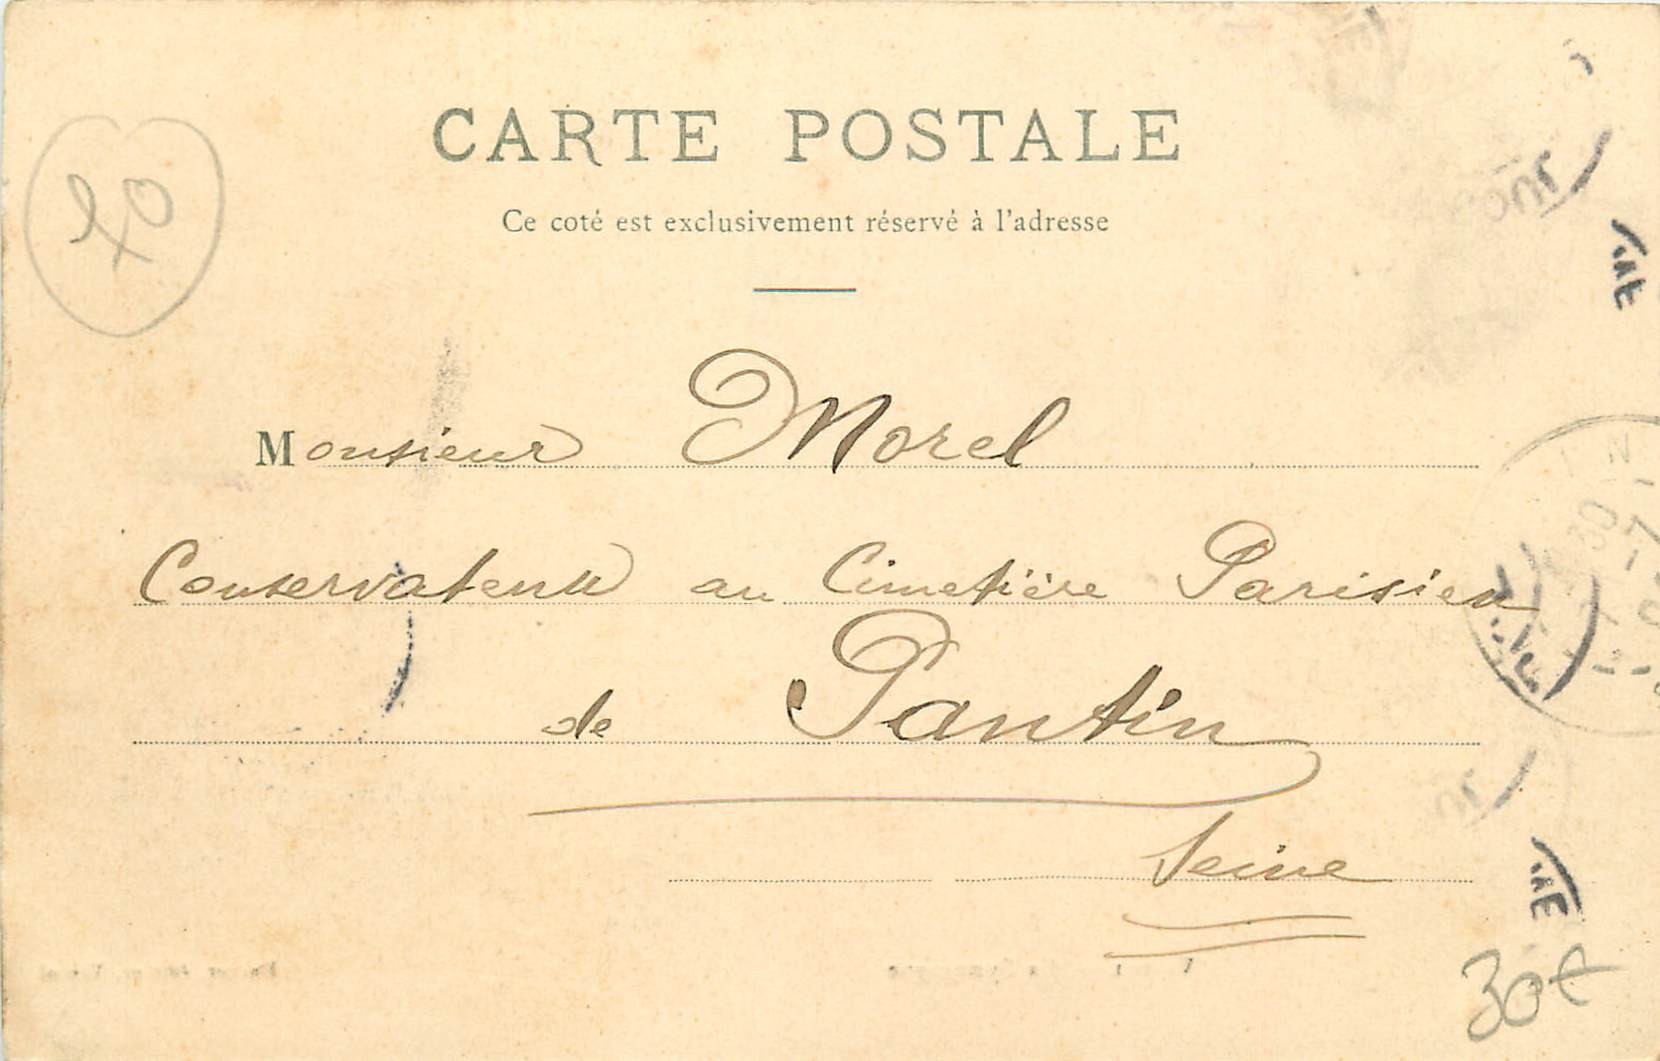 CARTE POSTALE
Ce coté est exclusivement réservé à l'adresse
Monsieur Morel
Conservateur au Cimetière Parisien
de Pantin
Seine
30€